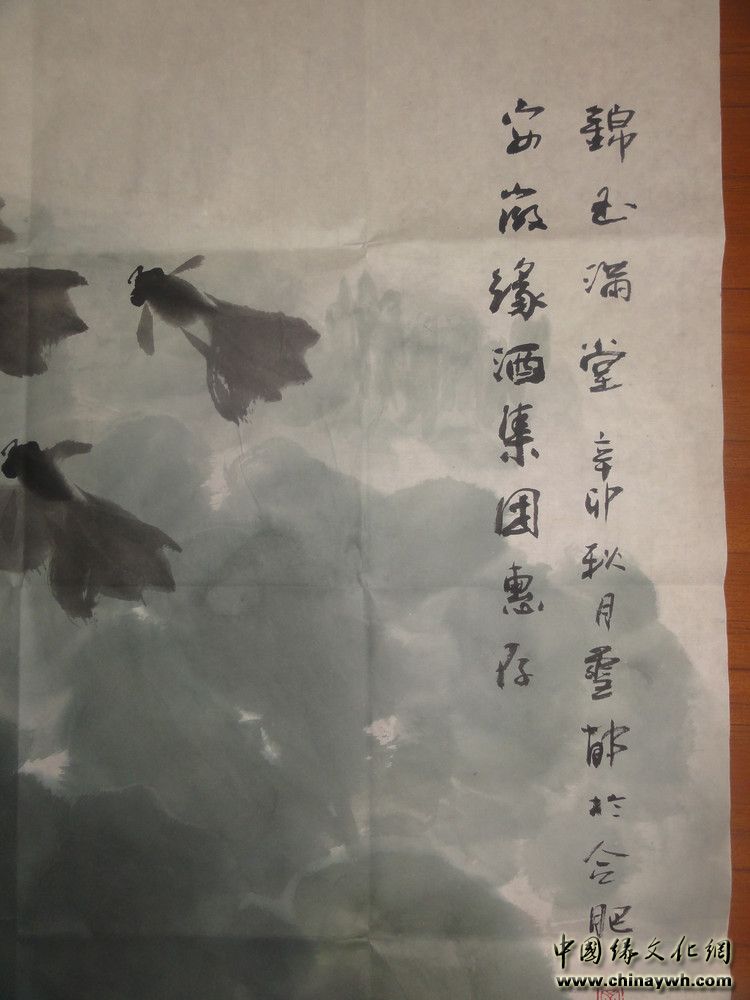 錦玉滿堂 辛卯秋月於合肥
安徽緣酒集团惠存
中國緣文化網
www.chinaywh.com